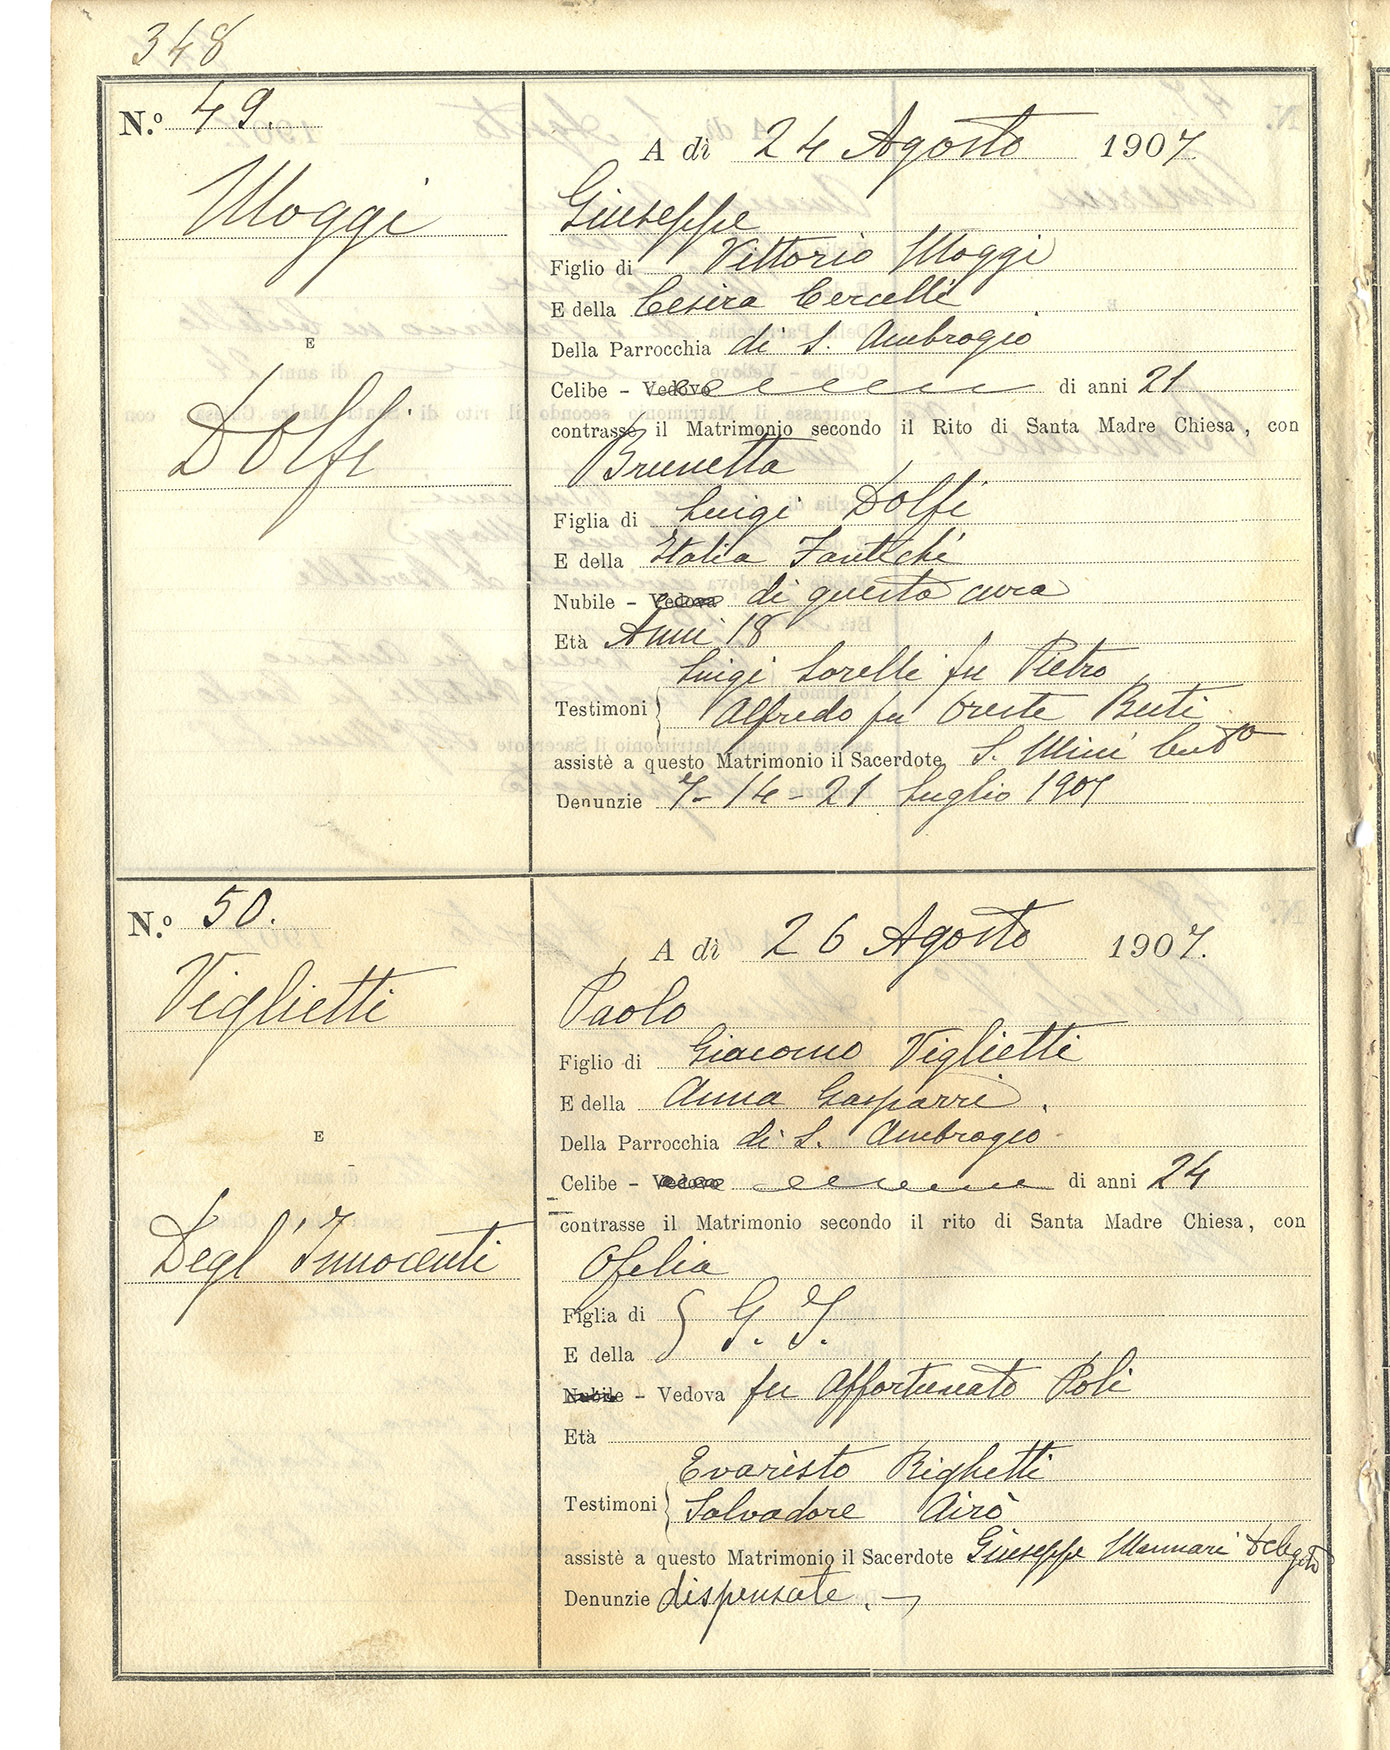 348
N.º 49.
A dì 24 Agosto 1907.
Moggi
Giuseppe
Figlio di Vittorio Moggi
E della Cesira Cerculli
E
Della Parrocchia di S. Ambrogio
Celibe - Vedovo di anni 21
Dolfi
contrasse il Matrimonio secondo il Rito di Santa Madre Chiesa, con
Brunetta
Figlia di Luigi Dolfi
E della Italia Fantechi
Nubile - Vedova di questa cura
Età Anni 18
Luigi Lorelli fu Pietro
Testimoni Alfredo fu Oreste Buti
assistè a questo Matrimonio il Sacerdote S. Mini
Denunzie 7 - 14 - 21 Luglio 1907
N.º 50.
A dì 26 Agosto 1907.
Viglietti
Paolo
Figlio di Giacomo Viglietti
E della Anna Gasparri.
E
Della Parrocchia di S. Ambrogio
Celibe - Vedovo di anni 24
contrasse il Matrimonio secondo il rito di Santa Madre Chiesa, con
Degl'Innocenti
Ofelia
Figlia di } G. I.
E della
Nubile - Vedova fu Affortunato Poli
Età
Evaristo Righetti
Testimoni Salvadore Airò
assistè a questo Matrimonio il Sacerdote Giuseppe Mannari Delegato
Denunzie dispensate. -